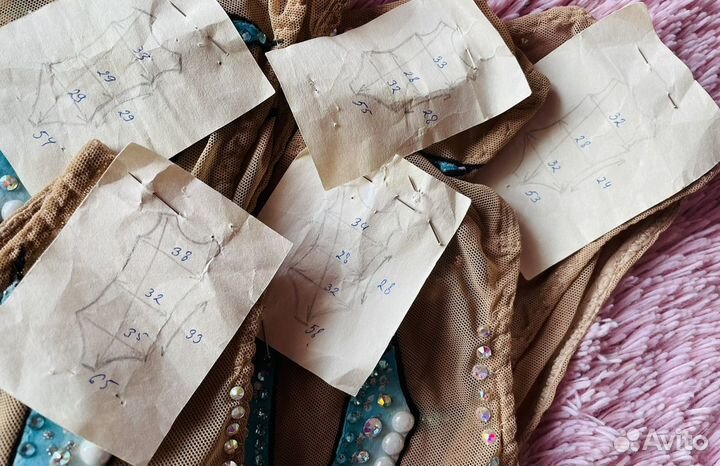 33
29
29
29
54
33
28
32
55
28
32
28
32
24
53
38
32
35
33
65
34
28
32
28
58
Avito